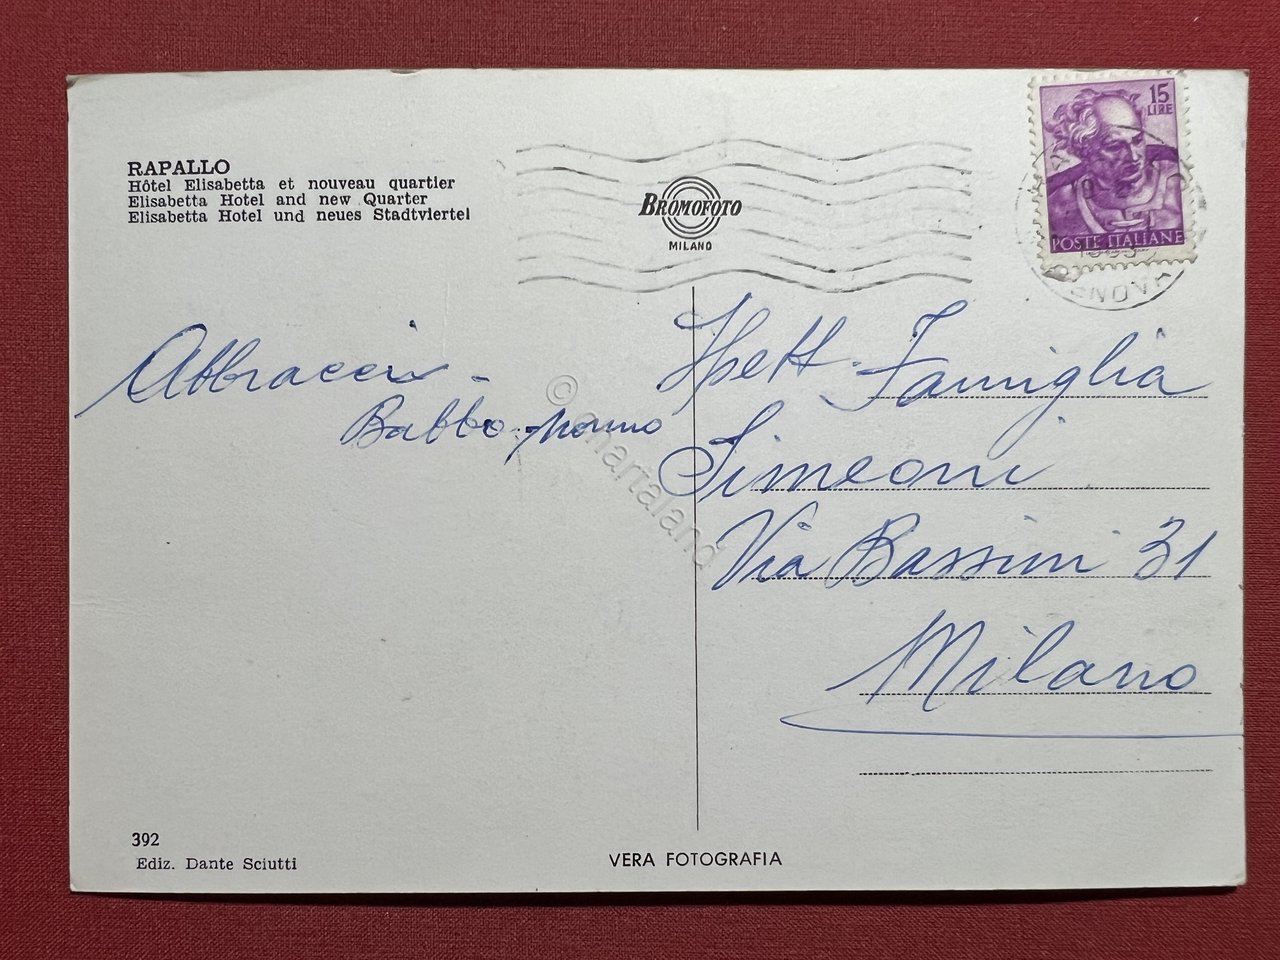 RAPALLO
Hôtel Elisabetta et nouveau quartier
Elisabetta Hotel and new Quarter
Elisabetta Hotel und neues Stadtviertel
BROMOFOTO
MILANO
15
LIRE
POSTE ITALIANE
GENOVA
Abbracci -
Babbo - nonno
Spett. Famiglia
Simeoni
Via Bassini 31
Milano
© martaland
392
Ediz. Dante Sciutti
VERA FOTOGRAFIA